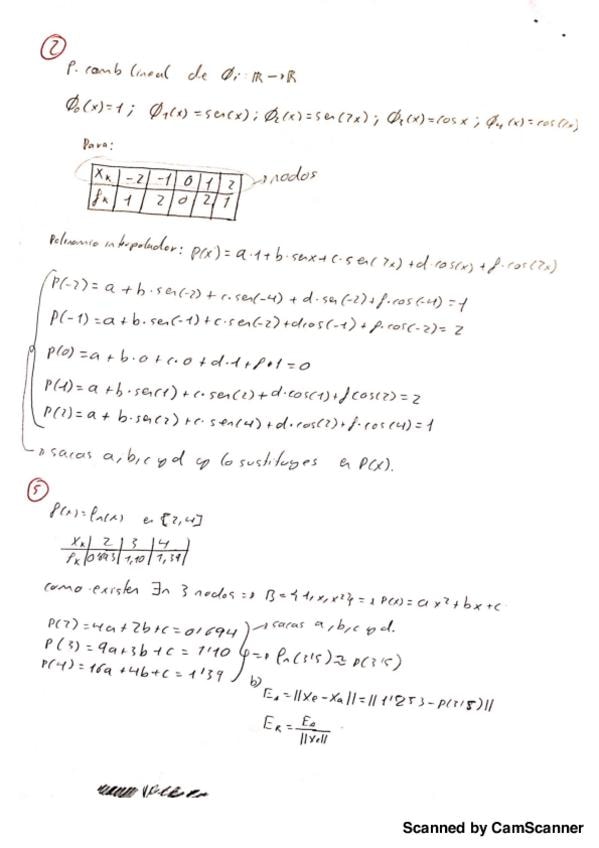 2
P. comb lineal de Ø_i: ℝ→ℝ
Ø₀(x)=1; Ø₁(x)=sen(x); Ø₂(x)=sen(2x); Ø₃(x)=cosx; Ø₄(x)=cos(2x)
Para:
x_k | -2 | -1 | 0 | 1 | 2 → nodos
f_k | 1 | 2 | 0 | 2 | 1
Polinomio interpolador: p(x)=a·1+b·senx+c·sen(2x)+d·cos(x)+f·cos(2x)
P(-2)=a+b·sen(-2)+c·sen(-4)+d·sen(-2)+f·cos(-4)=1
P(-1)=a+b·sen(-1)+c·sen(-2)+dcos(-1)+f·cos(-2)=2
p(0)=a+b·0+c·0+d·1+f·1=0
P(1)=a+b·sen(1)+c·sen(2)+d·cos(1)+fcos(2)=2
P(2)=a+b·sen(2)+c·sen(4)+d·cos(2)+f·cos(4)=1
→ sacas a,b,c y d y lo sustituyes en P(x).
5
f(x)=ln(x) en [2,4]
x_k | 2 | 3 | 4
f_k | 0'693 | 1,10 | 1,39
como existen ∃n 3 nodos => B={1,x,x²} => P(x)=ax²+bx+c
P(2)=4a+2b+c=0'694 → sacas a,b,c y d.
P(3)=9a+3b+c=1'10 => ln(3'5)≈p(3'5)
P(4)=16a+4b+c=1'39
b)
E_a=||x_e-x_a||=||1'253-P(3'5)||
E_R=E_a/||x_e||
Scanned by CamScanner